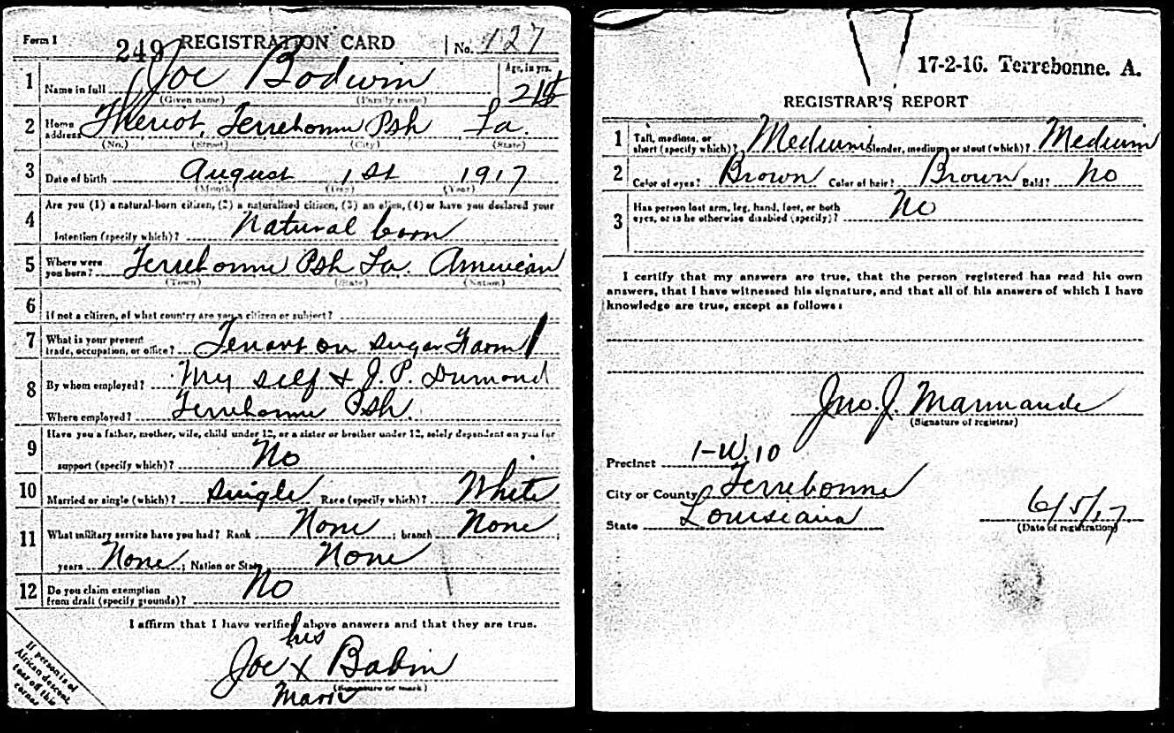 Form 1 249 REGISTRATION CARD No. 127
1 Name in full Joe Bodwin Age, in yrs.
(Given name) (Family name) 21
2 Home address Theriot, Terrebonne Psh La.
(No.) (Street) (City) (State)
3 Date of birth August 1st 1917
(Month) (Day) (Year)
4 Are you (1) a natural-born citizen, (2) a naturalized citizen, (3) an alien, (4) or have you declared your
intention (specify which)? Natural born
5 Where were you born? Terrebonne Psh La. American
(Town) (State) (Nation)
6 If not a citizen, of what country are you a citizen or subject?
7 What is your present trade, occupation, or office? Tenant on Sugar Farm 1
8 By whom employed? My self + J. P. Dumond
Where employed? Terrebonne Psh.
9 Have you a father, mother, wife, child under 12, or a sister or brother under 12, solely dependent on you for
support (specify which)? No
10 Married or single (which)? Single Race (specify which)? White
11 What military service have you had? Rank None ; branch None ;
years None ; Nation or State None
12 Do you claim exemption from draft (specify grounds)? No
I affirm that I have verified above answers and that they are true.
his
Joe X Babin
(Signature or mark)
Mark
If person is of
African descent,
tear off this
corner
17-2-16. Terrebonne. A.
REGISTRAR'S REPORT
1 Tall, medium, or short (specify which)? Medium Slender, medium, or stout (which)? Medium
2 Color of eyes? Brown Color of hair? Brown Bald? No
3 Has person lost arm, leg, hand, foot, or both eyes, or is he otherwise disabled (specify)? No
I certify that my answers are true, that the person registered has read his own
answers, that I have witnessed his signature, and that all of his answers of which I have
knowledge are true, except as follows:
Jno. J. Marmande
(Signature of registrar)
Precinct 1-W. 10
City or County Terrebonne
State Louisiana 6/5/17
(Date of registration)